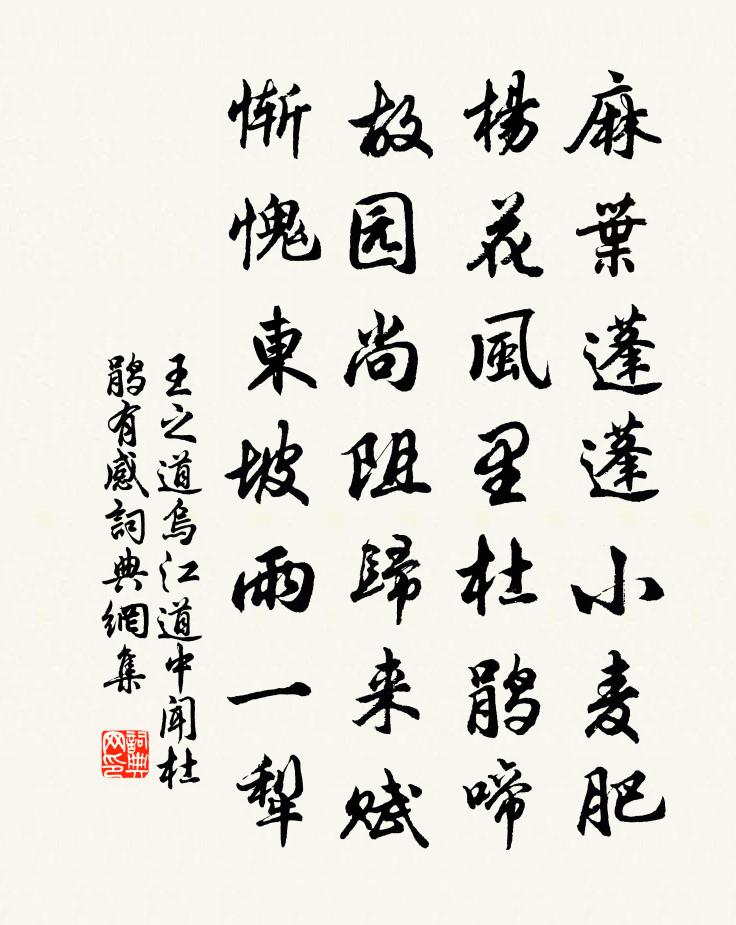 麻葉蓬蓬小麦肥
楊花風里杜鹃啼
故园尚阻歸来赋
惭愧東坡雨一犂
王之道烏江道中聞杜
鹃有感詞典網集
詞典
网印